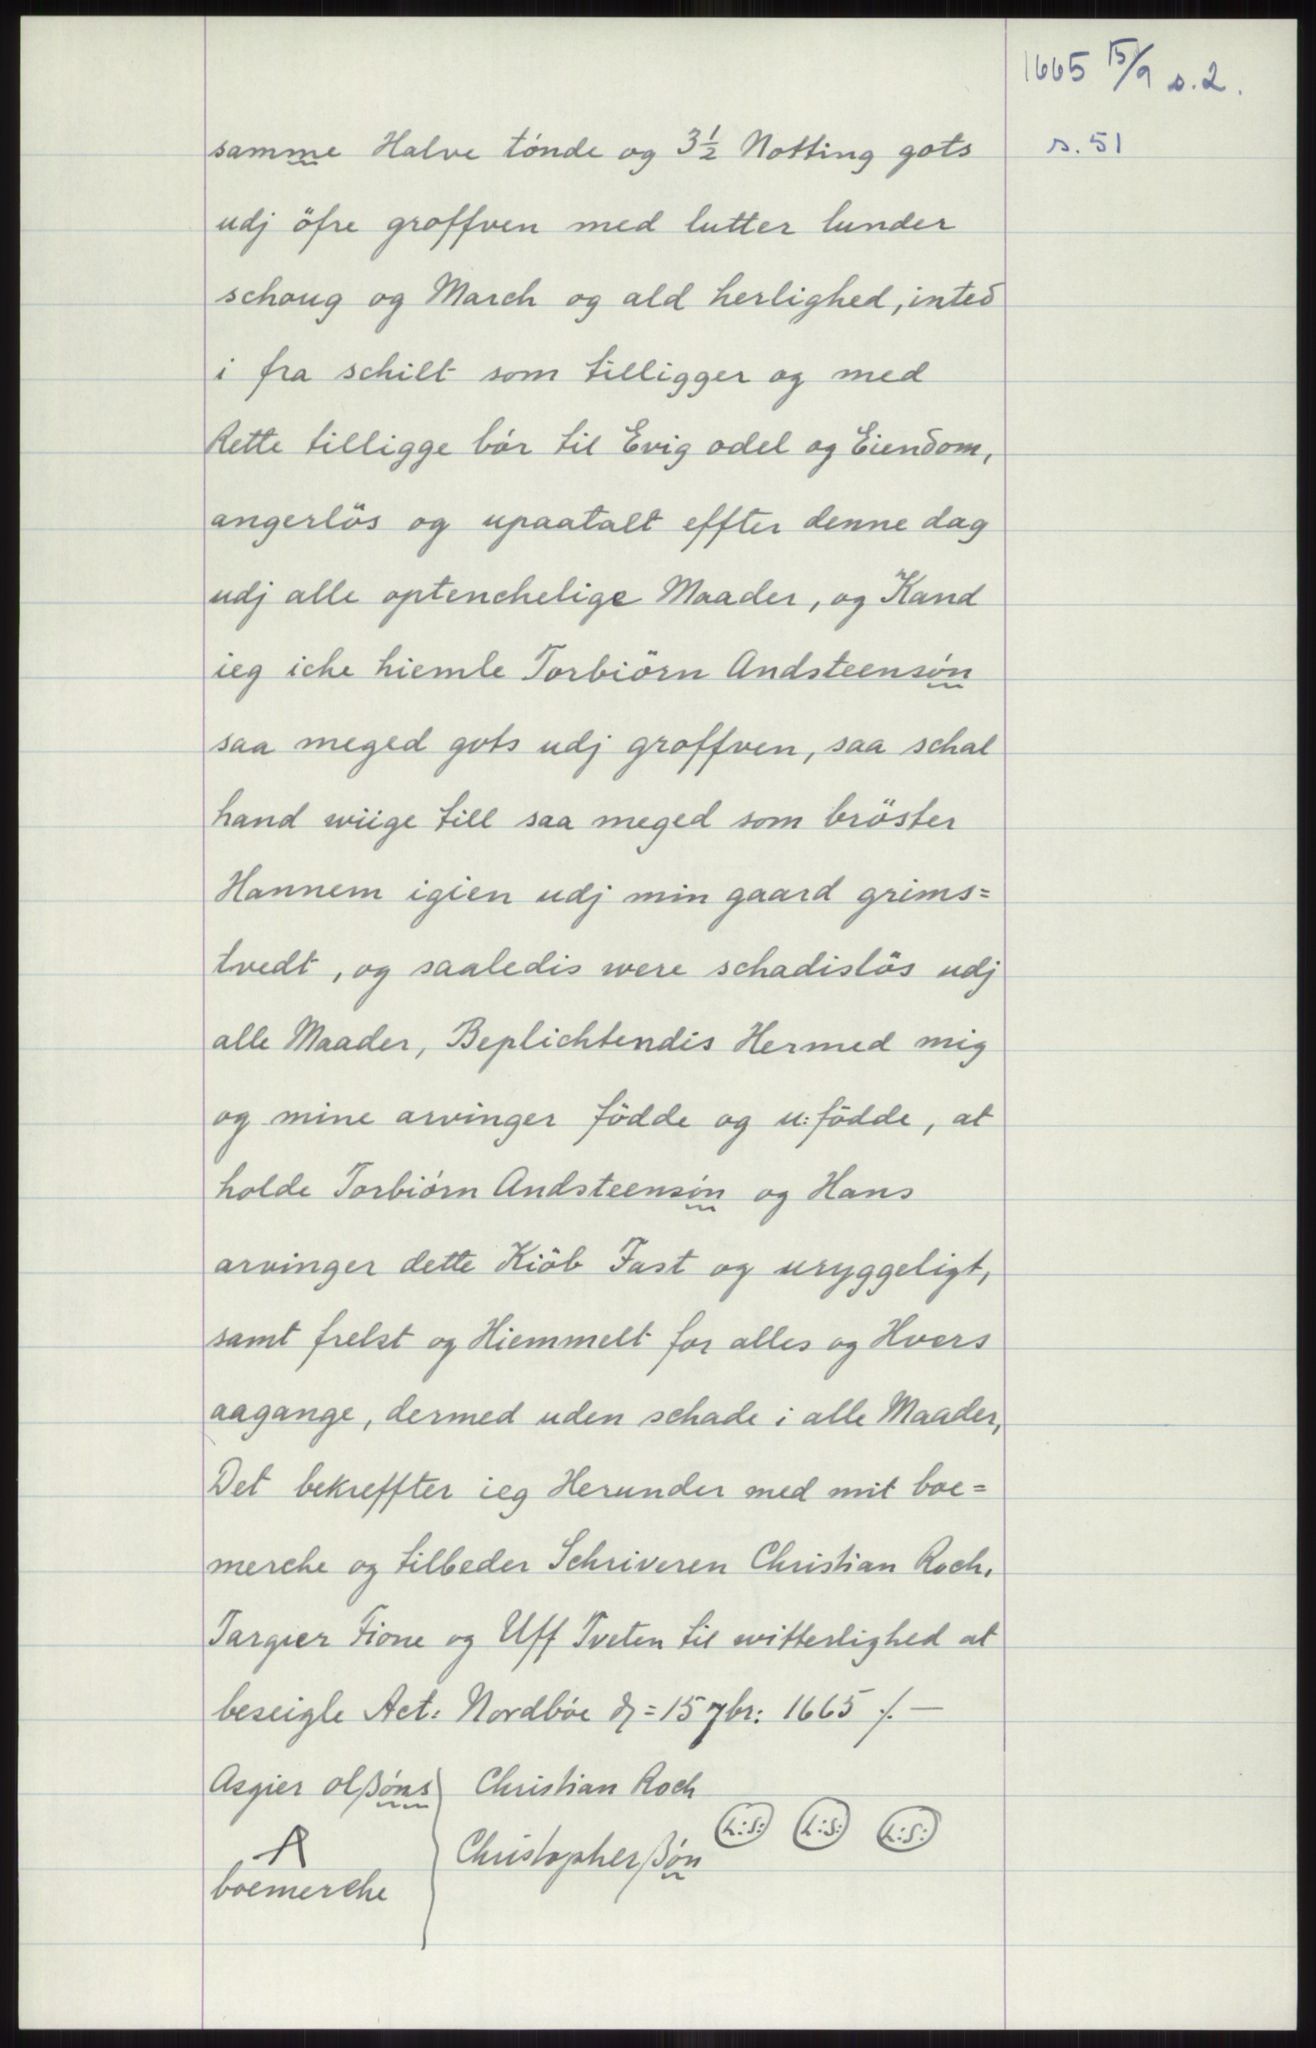 1665 15/9 s. 2.
s. 51
samme Halve tónde og 3½ Notting gots
udj öfre groffven med lutter lunder
schoug og March og ald herlighed, inted
i fra schilt som tilligger og med
Rette tilligge bör til Evig odel og Eiendom,
angerlös og upaatalt effter denne dag
udj alle optenchelige Maader, og Kand
ieg iche hiemle Torbiörn Andsteensón
saa meged gots udj groffven, saa schal
hand wiige till saa meged som bröster
Hannem igien udj min gaard grims=
tvedt, og saaledis were schadislös udj
alle Maader, Beplichtendis Hermed mig
og mine arvinger födde og u:födde, at
holde Torbiórn Andsteensón og Hans
arvinger dette Kiöb Fast og uryggeligt,
samt frelst og Hiemmelt for alles og Hvers
aagange, dermed uden schade i alle Maader,
Det bekreffter ieg Herunder med mit boe=
merche og tilbeder Schriveren Christian Roch,
Targier Fione og Uff Tveten til witterlighed at
beseigle Act: Nordbóe d = 15 7br: 1665 ./. —
Asgier olßóns
Christian Roch
Christopherßón
L:S: L:S: L:S:
boemerche